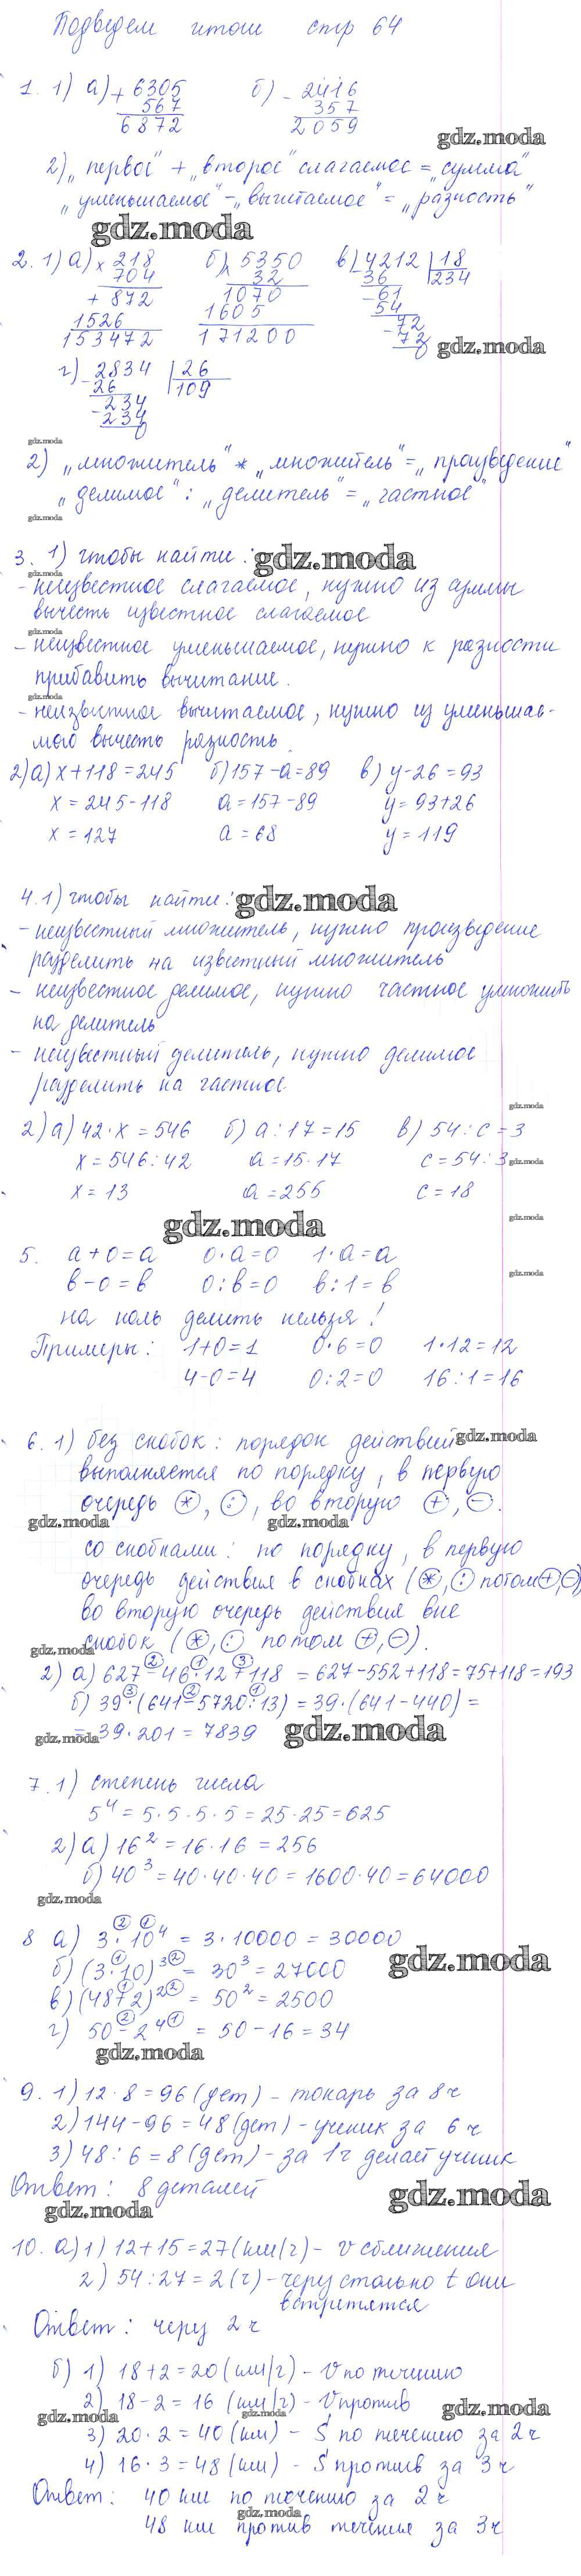 Подведем итоги стр 64
1. 1) а) + 6305 б) - 2416
567 357
6872 2059
gdz.moda
2) „первое" + „второе" слагаемое = „сумма"
„уменьшаемое" - „вычитаемое" = „разность"
gdz.moda
2. 1) а) × 218 б) × 5350 в) - 4212 | 18
704 32 36 234
+ 872 1070 - 61
1526 1605 54
153472 171200 - 72
72
0
gdz.moda
г) - 2834 | 26
26 109
- 234
234
0
gdz.moda
2) „множитель" * „множитель" = „произведение"
„делимое" : „делитель" = „частное"
gdz.moda
3. 1) чтобы найти: gdz.moda
- неизвестное слагаемое, нужно из суммы
вычесть известное слагаемое
gdz.moda
- неизвестное уменьшаемое, нужно к разности
прибавить вычитание.
gdz.moda
- неизвестное вычитаемое, нужно из уменьшае-
мого вычесть разность
2) а) x + 118 = 245 б) 157 - a = 89 в) y - 26 = 93
x = 245 - 118 a = 157 - 89 y = 93 + 26
x = 127 a = 68 y = 119
4. 1) чтобы найти: gdz.moda
- неизвестный множитель, нужно произведение
разделить на известный множитель
- неизвестное делимое, нужно частное умножить
на делитель
- неизвестный делитель, нужно делимое
разделить на частное
gdz.moda
2) а) 42 · x = 546 б) a : 17 = 15 в) 54 : c = 3
x = 546 : 42 a = 15 · 17 c = 54 : 3 gdz.moda
x = 13 a = 255 c = 18
gdz.moda gdz.moda
5. a + 0 = a 0 · a = 0 1 · a = a
в - 0 = в 0 : в = 0 в : 1 = в gdz.moda
на ноль делить нельзя!
Примеры: 1 + 0 = 1 0 · 6 = 0 1 · 12 = 12
4 - 0 = 4 0 : 2 = 0 16 : 1 = 16
6. 1) без скобок: порядок действий gdz.moda
выполняется по порядку, в первую
очередь *, :, во вторую +, -.
gdz.moda gdz.moda
со скобками: по порядку, в первую
очередь действия в скобках (*, : потом +, -),
во вторую очередь действия вне
gdz.moda скобок (*, : потом +, -).
2) а) 627 -② 46 ·① 12 +③ 118 = 627 - 552 + 118 = 75 + 118 = 193
б) 39 ·③ (641 -② 5720 :① 13) = 39 · (641 - 440) =
gdz.moda = 39 · 201 = 7839 gdz.moda
7. 1) степень числа
5⁴ = 5 · 5 · 5 · 5 = 25 · 25 = 625
2) а) 16² = 16 · 16 = 256
б) 40³ = 40 · 40 · 40 = 1600 · 40 = 64000
gdz.moda
8 а) 3 ·② 10⁴ ① = 3 · 10000 = 30000
б) (3 ·① 10)³ ② = 30³ = 27000 gdz.moda
в) (48 +① 2)² ② = 50² = 2500
г) 50 -② 2⁴ ① = 50 - 16 = 34
gdz.moda
9. 1) 12 · 8 = 96 (дет) - токарь за 8 ч
2) 144 - 96 = 48 (дет) - ученик за 6 ч
3) 48 : 6 = 8 (дет) - за 1 ч делает ученик
Ответ: 8 деталей
gdz.moda gdz.moda
10. а) 1) 12 + 15 = 27 (км/ч) - v сближения
2) 54 : 27 = 2 (ч) - через столько t они
встретятся
Ответ: через 2 ч
б) 1) 18 + 2 = 20 (км/ч) - v по течению
2) 18 - 2 = 16 (км/ч) - v против
gdz.moda gdz.moda gdz.moda
3) 20 · 2 = 40 (км) - S по течению за 2 ч
4) 16 · 3 = 48 (км) - S против за 3 ч
Ответ: 40 км по течению за 2 ч
gdz.moda
48 км против течения за 3 ч